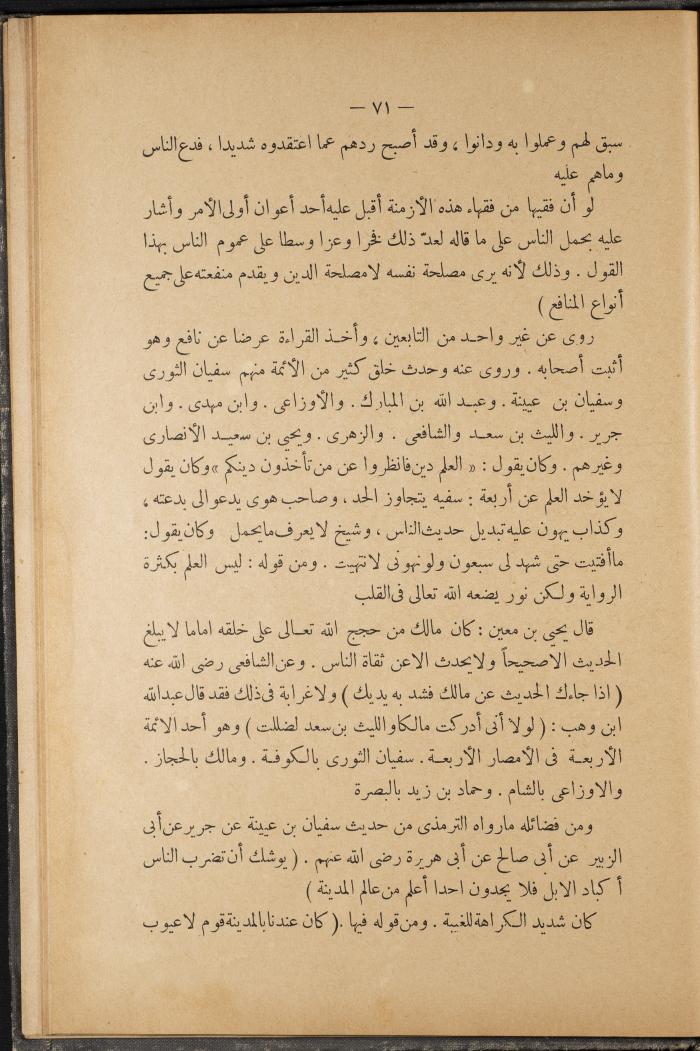 — ٧١ —
سبق لهم وعملوا به ودانوا ، وقد أصبح ردهم عما اعتقدوه شديدا ، فدع الناس
وماهم عليه
لو أن فقيها من فقهاء هذه الأزمنة أقبل عليه أحد أعوان أولى الأمر وأشار
عليه بحمل الناس على ما قاله لعدّ ذلك فخرا وعزا وسطا على عموم الناس بهذا
القول . وذلك لأنه يرى مصلحة نفسه لامصلحة الدين ويقدم منفعته على جميع
أنواع المنافع )
روى عن غير واحد من التابعين ، وأخذ القراءة عرضا عن نافع وهو
أثبت أصحابه . وروى عنه وحدث خلق كثير من الأئمة منهم سفيان الثورى
وسفيان بن عيينة . وعبد الله بن المبارك . والأوزاعى . وابن مهدى . وابن
جرير . والليث بن سعد والشافعى . والزهرى . ويحيى بن سعيد الأنصارى
وغيرهم . وكان يقول : « العلم دين فانظروا عن من تأخذون دينكم » وكان يقول
لايؤخد العلم عن أربعة : سفيه يتجاوز الحد ، وصاحب هوى يدعو الى بدعته ،
وكذاب يهون عليه تبديل حديث الناس ، وشيخ لايعرف مايحمل وكان يقول :
ماأفتيت حتى شهد لى سبعون ولو نهونى لانتهيت . ومن قوله : ليس العلم بكثرة
الرواية ولكن نور يضعه الله تعالى فى القلب
قال يحيى بن معين : كان مالك من حجج الله تعالى على خلقه اماما لايبلغ
الحديث الاصحيحاً ولايحدث الاعن ثقاة الناس . وعن الشافعى رضى الله عنه
( اذا جاءك الحديث عن مالك فشد به يديك ) ولاغرابة فى ذلك فقد قال عبدالله
ابن وهب : ( لولا أنى أدركت مالكا والليث بن سعد لضللت ) وهو أحد الائمة
الأربعة فى الأمصار الأربعة . سفيان الثورى بالكوفة . ومالك بالحجاز .
والاوزاعى بالشام . وحماد بن زيد بالبصرة
ومن فضائله مارواه الترمذى من حديث سفيان بن عيينة عن جرير عن أبى
الزبير عن أبى صالح عن أبى هريرة رضى الله عنهم . ( يوشك أن تضرب الناس
أكباد الابل فلا يجدون احدا أعلم من عالم المدينة )
كان شديد الكراهة للغيبة . ومن قوله فيها .( كان عندنا بالمدينة قوم لاعيوب